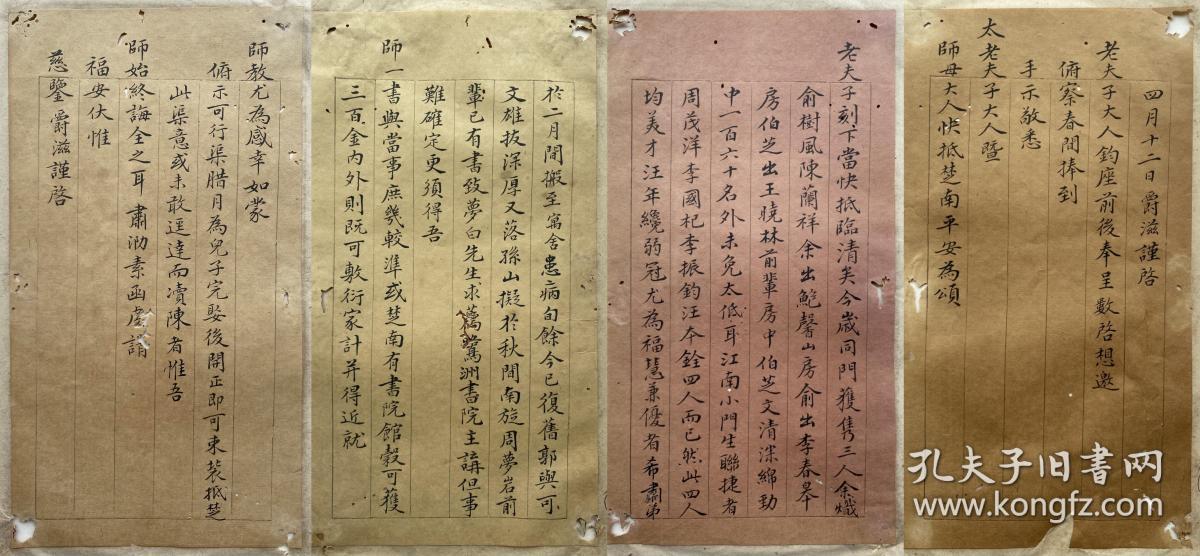 四月十二日爵滋謹啓
老夫子大人鈞座前後奉呈數啓想邀
俯察春間捧到
手示敬悉
太老夫子大人暨
師母大人快抵楚南平安為頌
老夫子刻下當快抵臨清矣今歲同門獲雋三人余熾
俞樹風陳蘭祥余出鮑馨山房俞出李春皋
房伯芝出王曉林前輩房中伯芝文清深綿勁
中一百六十名外未免太低耳江南小門生聯捷者
周茂洋李國杞李振鈞汪本銓四人而已然此四人
均美才汪年纔弱冠尤為福慧兼優者希肅弟
於二月間搬至寓舍患病旬餘今已復舊郭與可
文雄拔深厚又落孫山擬於秋間南旋周夢岩前
輩已有書致夢白先生求鷺洲書院主講但事
難確定更須得吾
師一書與當事庶幾較準或楚南有書院館穀可獲
三百金內外則既可敷衍家計并得近就
師教尤為感幸如蒙
俯示可行渠腊月為兒子完娶後開正即可束裝抵楚
此渠意或未敢逕達而瀆陳者惟吾
師始終誨全之耳 肅泐素函虔請
福安伏惟
慈鑒爵滋謹啓
孔夫子旧书网
www.kongfz.com